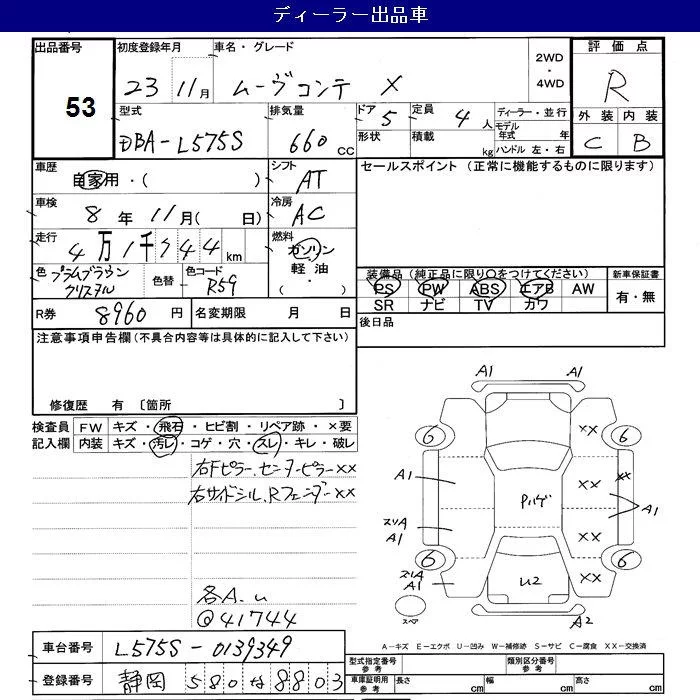 ディーラー出品車
出品番号 53
初度登録年月 23 11月
車名・グレード ムーヴコンテ X
2WD・4WD
評価点 R
外装 C 内装 B
型式 DBA-L575S
排気量 660cc
ドア 5 定員 4人
形状 積載 kg
ディーラー・並行
モデル年式 年
ハンドル 左・右
車歴 自家用・( )
シフト AT
車検 8年11月( 日)
冷房 AC
走行 4万1千744km
燃料 ガソリン 軽油・( )
色 プラムブラウンクリスタル 色替 色コード R59
R券 8960円 名変期限 月 日
セールスポイント (正常に機能するものに限ります)
装備品(純正品に限り○をつけてください) 新車保証書
PS PW ABS エアB AW 有・無
SR ナビ TV カワ
後日品
注意事項申告欄(不具合内容等は具体的に記入して下さい)
修復歴 有 〔箇所 〕
検査員記入欄 FW キズ・飛石・ヒビ割・リペア跡・×要
内装 キズ・汚レ・コゲ・穴・スレ・キレ・破レ
右Fピラー.センターピラーXX
右サイドシル.RフェンダーXX
各A.u
@41744
車台番号 L575S-0139349
登録番号 静岡 580 8803
A1 A1
6 XX 6
A1 XX XX
Pルゲ A1
スリA A1 XX
6 XX 6
スリA A1 U2
スペア A2
A-キズ E-エクボ U-凹み W-補修跡 S-サビ C-腐食 XX-交換済
型式指定番号 参考 類別区分番号 参考
車庫証明用 参考 長さ cm 幅 cm 高さ cm